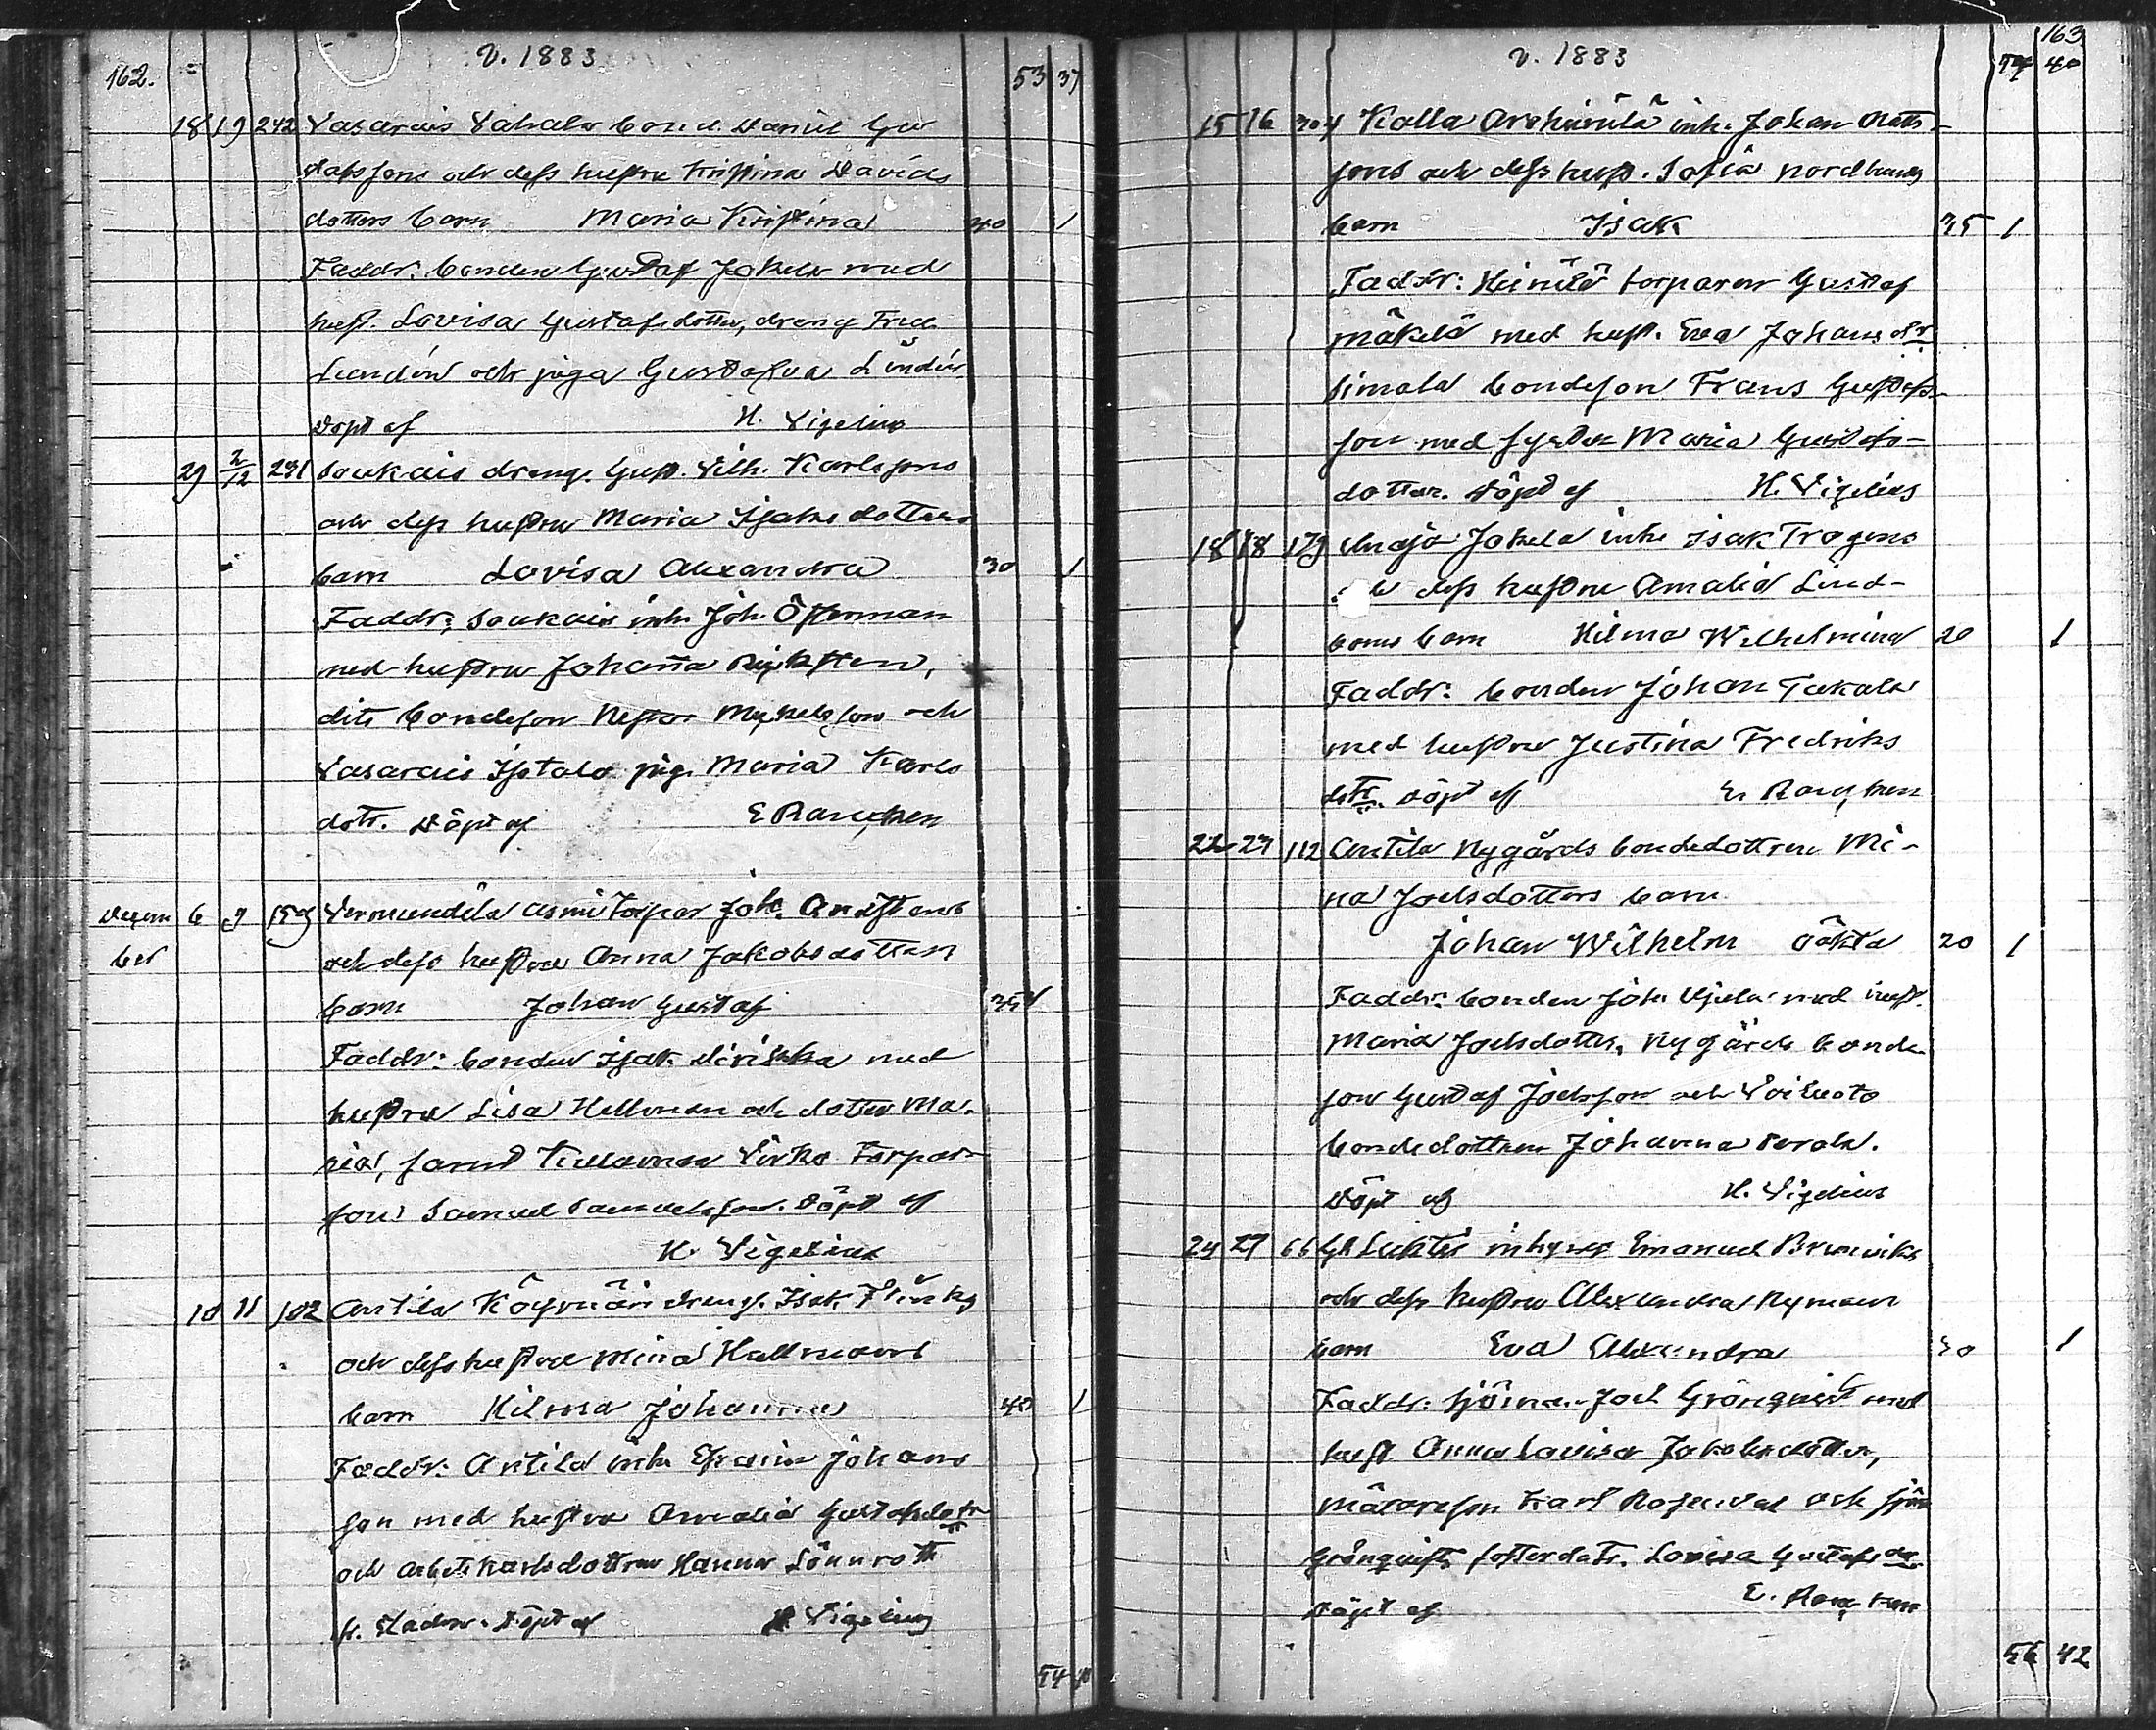 162. v. 1883 53 37
18 19 242 Vasarais Vahala bond. Daniel Gu
stafsons och dess hustru Kristina Davids
dotters barn Maria Kristina 40 1
Faddr. bonden Gustaf Jokela med
hust. Lovisa Gustafsdotter, dreng Fred.
Lundén och piga Gustafva Lindén
Döpt af H. Vigelius
29 2/12 231 Soukais dreng. Gust. Vilh. Karlssons
och dess hustru Maria Isaksdotters
barn Lovisa Alexandra 30 1
Faddr: Soukais inh. Joh. Österman
med hustru Johanna
dito bondeson Nestor Mickelsson och
Vasarais Isotalo pig. Maria Karls
dotr. Döpt af E Rancken
Decem 6 9 159 Vermundila torpar Joh.
ber och dess hustru Anna Jakobsdotters
barn Johan Gustaf 35 1
Faddr: bonden Isak med
hustru Lisa Hellman och dotter Ma-
ria, samt torpar-
son Samuel Samuelsson. Döpt af
H. Vigelius
10 11 102 Antila Köyvään dreng. Isak Flinks
och dess hustru Mina Hallmans
barn Hilma Johanna 40 1
Faddr: Antila inh. Efraim Johans
son med hustru Amalia Gustafsdotr
och arbetskarlsdottren Hanna Lönnroth
Döpt af H. Vigelius
54 40
163
v. 1883 54 40
15 16 304 Kalla inh. Johan Matts-
sons och dess hust. Sofia Nordlunds
barn Isak 35 1
Faddr: torparen Gustaf
Mäkelä med hust. Eva Johansdr
Simola bondeson Frans Gustafs-
son med syster Maria Gustafs-
dotter. Döpt af H. Vigelius
18 18 179 Jokela inh. Isak Trogens
dess hustru Amalia Lind-
boms barn Hilma Wilhelmina 20 1
Faddr: bonden Johan Takala
med hustru Justina Fredriks
dotr. Döpt af E. Rancken
22 23 112 Antila Nygårds bondedottren Mi-
na Joelsdotters barn
Johan Wilhelm oäkta 20 1
Faddr: bonden Joh. Ujula med hust.
Maria Joelsdotter, Nygårds bonde-
son Gustaf Joelsson och Voiluoto
bondedottren Johanna Perala.
Döpt af H. Vigelius
24 27 66 inhyses Emanuel Brunviks
och dess hustru Alexandra Nymans
barn Eva Alexandra 30 1
Faddr: sjöman Joel Grönqvist med
hust. Anna Lovisa Jakobsdotter,
målareson Karl Rosendal och sjöm
Grönqvists fosterdotr. Lovisa Gustafsdr
Döpt af E. Rancken
56 42